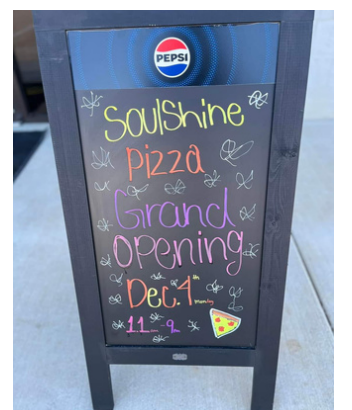 PEPSI
SoulShine
Pizza
Grand
Opening
Dec. 4th Monday
11 - 9